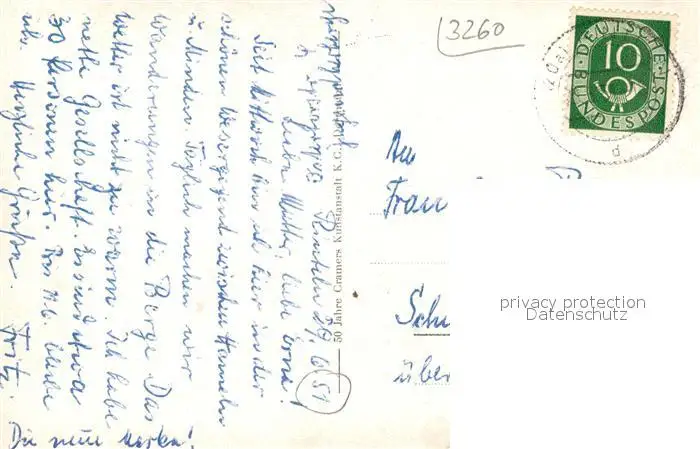 Rinteln 29.6.51
Liebe Mutter, liebe Erna!
Seit Mittwoch bin ich hier in der
schönen Wesergegend zwischen Hameln
u. Minden. Täglich machen wir
Wanderungen in die Berge. Das
Wetter ist nicht zu warm. Ich habe
nette Gesellschaft. Es sind etwa
30 Personen hier. Bis
Herzliche Grüße. Fritz.
Die neue Marke!
50 Jahre Cramers Kunstanstalt K.G.
3260
DEUTSCHE BUNDESPOST
10
d
An
Frau
Sch
über
privacy protection
Datenschutz